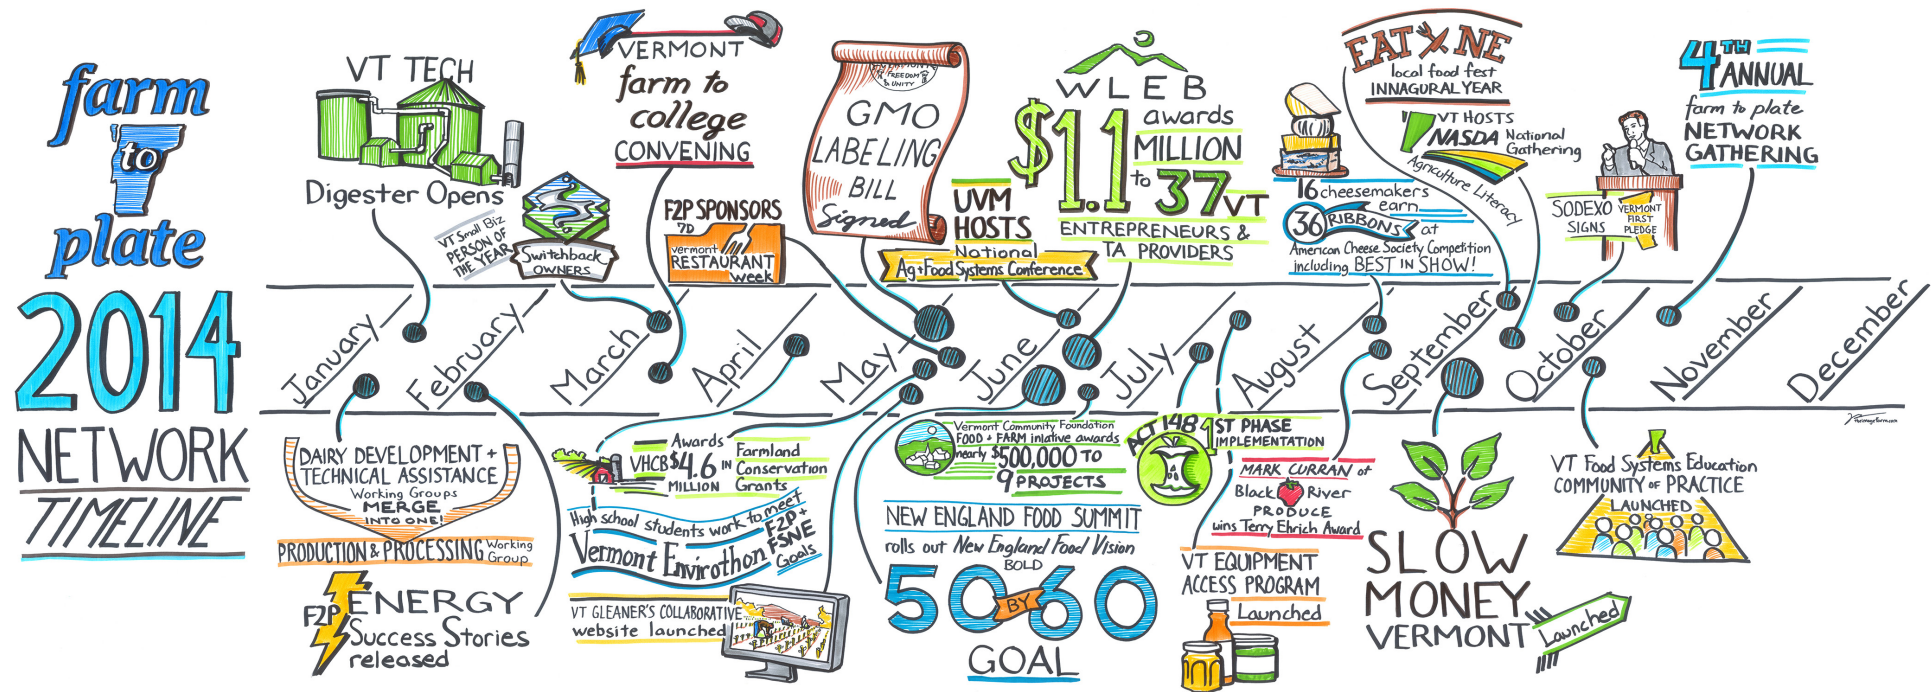 farm
to
plate
2014
NETWORK
TIMELINE
VT TECH
Digester Opens
VT Small Biz
PERSON OF
THE YEAR
Switchback
OWNERS
VERMONT
farm to
college
CONVENING
F2P SPONSORS
7D
vermont
RESTAURANT
week
FREEDOM
& UNITY
GMO
LABELING
BILL
Signed
UVM
HOSTS
National
Ag + Food Systems Conference
WLEB
$1.1
awards
MILLION
to 37 VT
ENTREPRENEURS &
TA PROVIDERS
16 cheesemakers
earn
36 RIBBONS at
American Cheese Society Competition
including BEST IN SHOW!
EAT NE
local food fest
INNAGURAL YEAR
VT HOSTS
NASDA National
Gathering
Agriculture Literacy
SODEXO
SIGNS
VERMONT
FIRST
PLEDGE
4TH
ANNUAL
farm to plate
NETWORK
GATHERING
January
February
March
April
May
June
July
August
September
October
November
December
DAIRY DEVELOPMENT +
TECHNICAL ASSISTANCE
Working Groups
MERGE
INTO ONE!
PRODUCTION & PROCESSING Working
Group
F2P ENERGY
Success Stories
released
Awards
VHCB $4.6 IN
MILLION
Farmland
Conservation
Grants
High school students work to meet
F2P +
FSNE
Goals
Vermont Envirothon
VT GLEANER'S COLLABORATIVE
website launched
Vermont Community Foundation
FOOD + FARM iniative awards
nearly $500,000 TO
9 PROJECTS
NEW ENGLAND FOOD SUMMIT
rolls out New England Food Vision
BOLD
50 BY 60
GOAL
ACT 148
1ST PHASE
IMPLEMENTATION
MARK CURRAN of
Black River
PRODUCE
wins Terry Ehrich Award
VT EQUIPMENT
ACCESS PROGRAM
Launched
SLOW
MONEY
VERMONT
Launched
VT Food Systems Education
COMMUNITY of PRACTICE
LAUNCHED